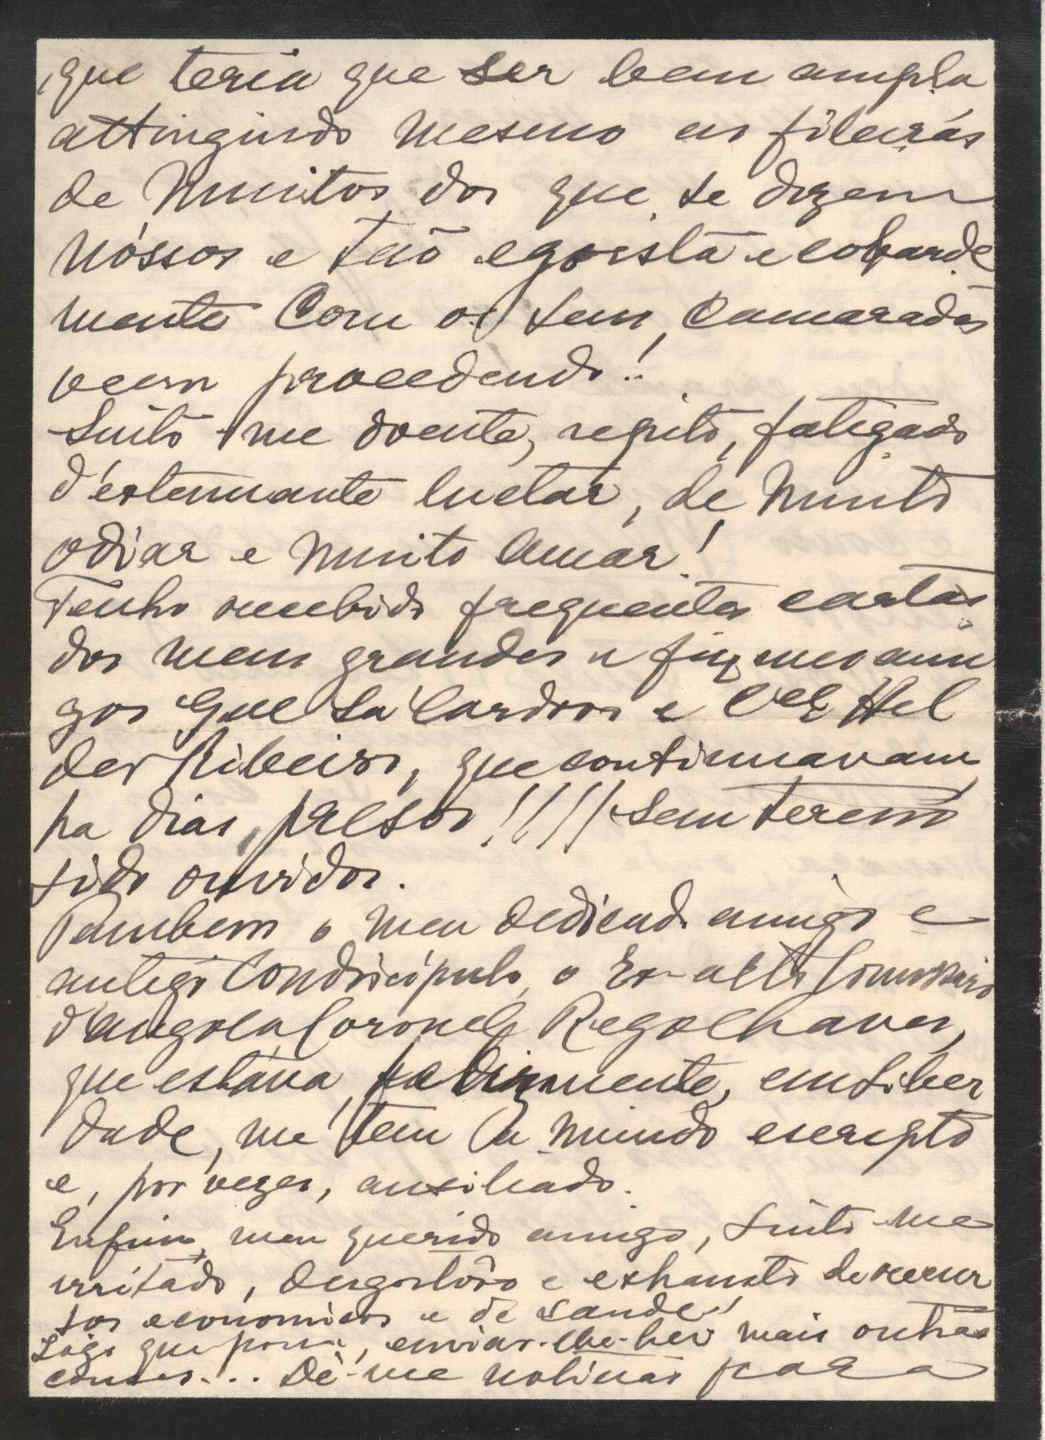 que teria que ser bem ampla
attingindo mesmo as fileiras
de muitos dos que se dizem
nóssos e tão egoista e cobarde
mente com os seus camaradas
veem procedendo!!
Sinto-me doente, repito, fatigado
d'extenuante luctar, de muito
odiar e muito amar!
Tenho recebido frequentes cartas
dos meus grandes e firmes ami
gos Gal Sá Cardoso e Cel Hel
der Ribeiro, que continuavam,
ha dias, presos!!!! sem terem
sido ouvidos.
Tambem o meu dedicado amigo e
antigo condiscípulo, o Ex-alto Comissario
d'Angola Coronel Rego Chaves,
que estava, felizmente, em liber
dade, me tem a miudo escripto
e, por vezes, auxiliado.
Enfim, meu querido amigo, sinto-me
irritado, desgostôso e exhausto de recur
sos economicos e de saude!
Logo que possa, enviar-lhe-hei mais outras
cousas... Dê-me noticias para